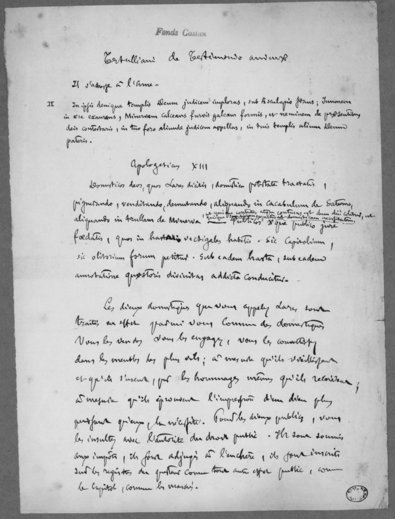 Fonds Cosson
Tertulliani de Testimonio animæ
Il s'adresse à l'âme.
II In ipsis denique templis Deum judicem imploras, sub Æsculapio stans, Junonem
in ære exorans, Minervam calceans furvis galeam formis, et neminem de præsentibus
deis contestaris, in tuo foro aliunde judicem appellas, in tuis templis alium Deum
pateris.
Apologeticus XIII
Domesticos deos, quos Lares dicitis, domestica potestate tractatis,
pignerando, venditando, demutando, aliquando in cacabulum de Saturno,
aliquando in trullam de Minerva
Publicos æque publico jure
fœdatis, quos in hastario vectigales habetis. Sic Capitolium,
sic olitorium forum petitur. Sub eadem hasta, sub eadem
annotatione quæstoris divinitas addicta conducitur.
Les dieux domestiques que vous appelez Lares sont
traités en effet parmi vous comme des domestiques
Vous les vendez vous les engagez, vous les convertissez
dans les meubles les plus vils; à mesure qu'ils vieillissent
et qu'ils s'usent, par les hommages mêmes qu'ils reçoivent,
à mesure qu'ils éprouvent l'impression d'un dieu plus
puissant qu'eux, la nécessité. Pour les dieux publics, vous
les insultez avec l'autorité du droit public. Ils sont soumis
aux impôts, ils sont adjugés à l'enchère, ils sont inscrits
sur les registres du questeur comme tout autre effet public, comme
le Capitole, comme les marais.